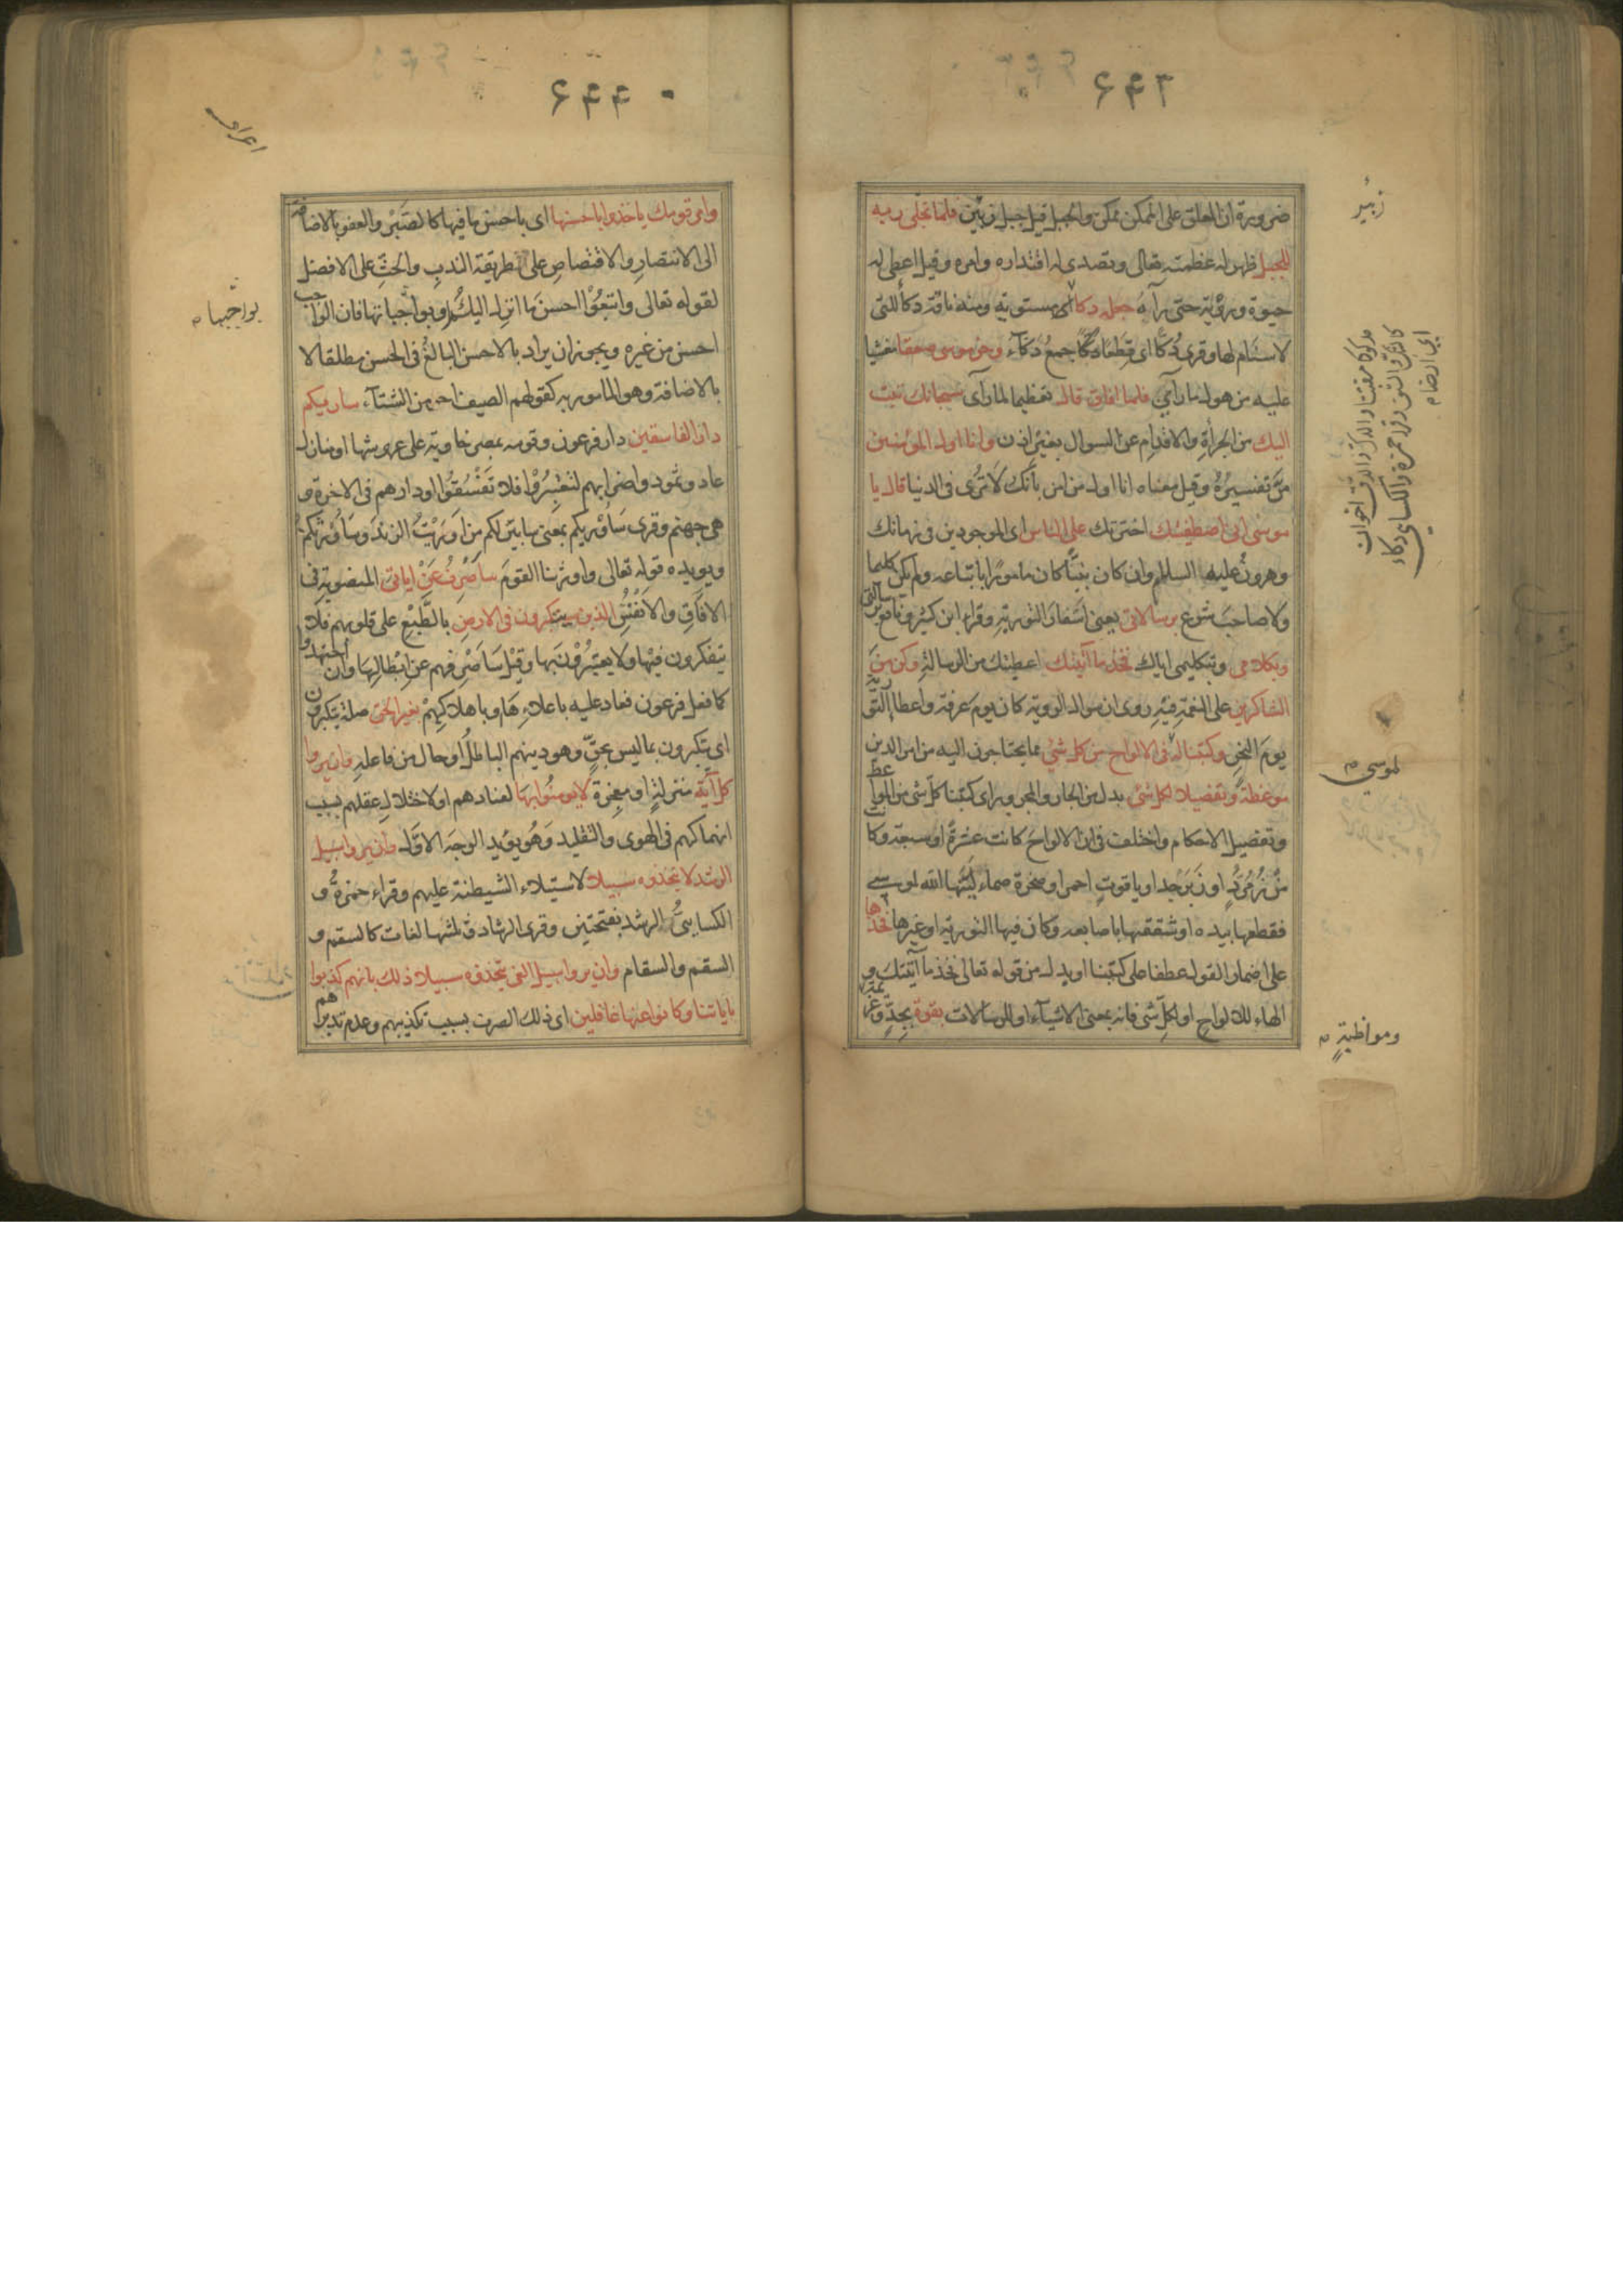 ۶۴۳
ضرورة ان المعلق على الممكن ممكن والجبل قيل جبل زبير فلما تجلى ربه
للجبل ظهر له عظمته تعالى وتصدى له اقتداره وامره وقيل اعطى له
حيوة ورؤية حتى رآه جعله دكا اى مستوية ومنه ناقة دكاء للتى
لاسنام لها وقرى دُكّا اى قطعا دكّا جمع دكآء وخر موسى صعقا مغشيا
عليه من هول ما رآى فلما افاق قال تعظيما لما رآى سبحانك تبت
اليك من الجرأة والاقدام عن السوال بغير اذن وانا اول المؤمنين
مرّ تفسيره وقيل معناه انا اول من امن بأنك لا ترى فى الدنيا قال يا
موسى انى اصطفيتك اخترتك على الناس اى الموجودين فى زمانك
وهرون عليه السلام وان كان نبيّا كان مامورًا باتباعه ولم يكن كليما
ولا صاحب شرع برسالاتى يعنى اسفار التورية وقراء ابن كثير ونافع برسالتى
وبكلامى وبتكليمى اياك فخذ ما آتيتك اعطيتك من الرسالة وكن من
الشاكرين على النعمة فيه روى ان سوال الروية كان يوم عرفة واعطا التورية
يوم النحر وكتبنا له فى الالواح من كل شئ مما يحتاجون اليه من امر الدين
موعظة وتفصيلا لكل شئ بدل من الجار والمجرور اى كتبنا كل شى من المواعظ
وتفصيل الاحكام واختلف فى ان الالواح كانت عشرة او سبعة وكانت
من زمرد او زبرجد او ياقوت احمر او صخرة صماء ليّنها الله لموسى
فقطعها بيده او شققها باصابعه وكان فيها التورية او غيرها فخذها
على اضمار القول عطفا على كتبنا او بدل من قوله تعالى فخذ ما آتيتك و
الهاء للالواح او لكل شى فانه بمعنى الاشيآء او للرسالات بقوة بجدّ وعزيمة
زبير
لموسى
ومواظبةٍ
۶۴۴
وامر قومك ياخذوا باحسنها اى باحسن ما فيها كالصبر والعفو بالاضافة
الى الانتصار والاقتصاص على طريقة الندب والحث على الافضل
لقوله تعالى واتبعوا احسن ما انزل اليكم او بواجباتها فان الواجب
احسن من غيره ويجوز ان يراد بالاحسن البالغ فى الحسن مطلقا لا
بالاضافة وهو المامور به كقولهم الصيف احر من الشتآء ساريكم
دار الفاسقين دار فرعون وقومه بمصر خاوية على عروشها او منازل
عاد وثمود واضرابهم لتعتبروا فلا تفسقوا او دارهم فى الاخرة و
هى جهنم وقرى سأوريكم بمعنى سابين لكم من اوريت الزند وسأورثكم
ويويده قوله تعالى واورثنا القوم ساصرف عن اياتى المنصوبة فى
الافاق والانفس الذين يتكبرون فى الارض بالطبع على قلوبهم فلا
يتفكرون فيها ولا يعتبرون بها وقيل ساصرفهم عن ابطالها وان اجتهدوا
كما فعل فرعون فعاد عليه باعلاءها وباهلاكهم بغير الحق صلة يتكبرون
اى يتكبرون بما ليس بحق وهو دينهم الباطل او حال من فاعله وان يروا
كل آية منزلة او معجزة لا يومنوا بها لعنادهم او لاختلال عقلهم بسبب
انهماكهم فى الهوى والتقليد وهو يويد الوجه الاوّل وان يروا سبيل
الرشد لا يتخذوه سبيلا لاستيلاء الشيطنة عليهم وقراء حمزة و
الكسايىّ الرشد بفتحتين وقرى الرشاد وثلثها لغات كالسقم و
السقم والسقام وان يروا سبيل الغى يتخذوه سبيلا ذلك بانهم كذبوا
باياتنا وكانوا عنها غافلين اى ذلك الصرف بسبب تكذيبهم وعدم تدبرهم
بواجبها